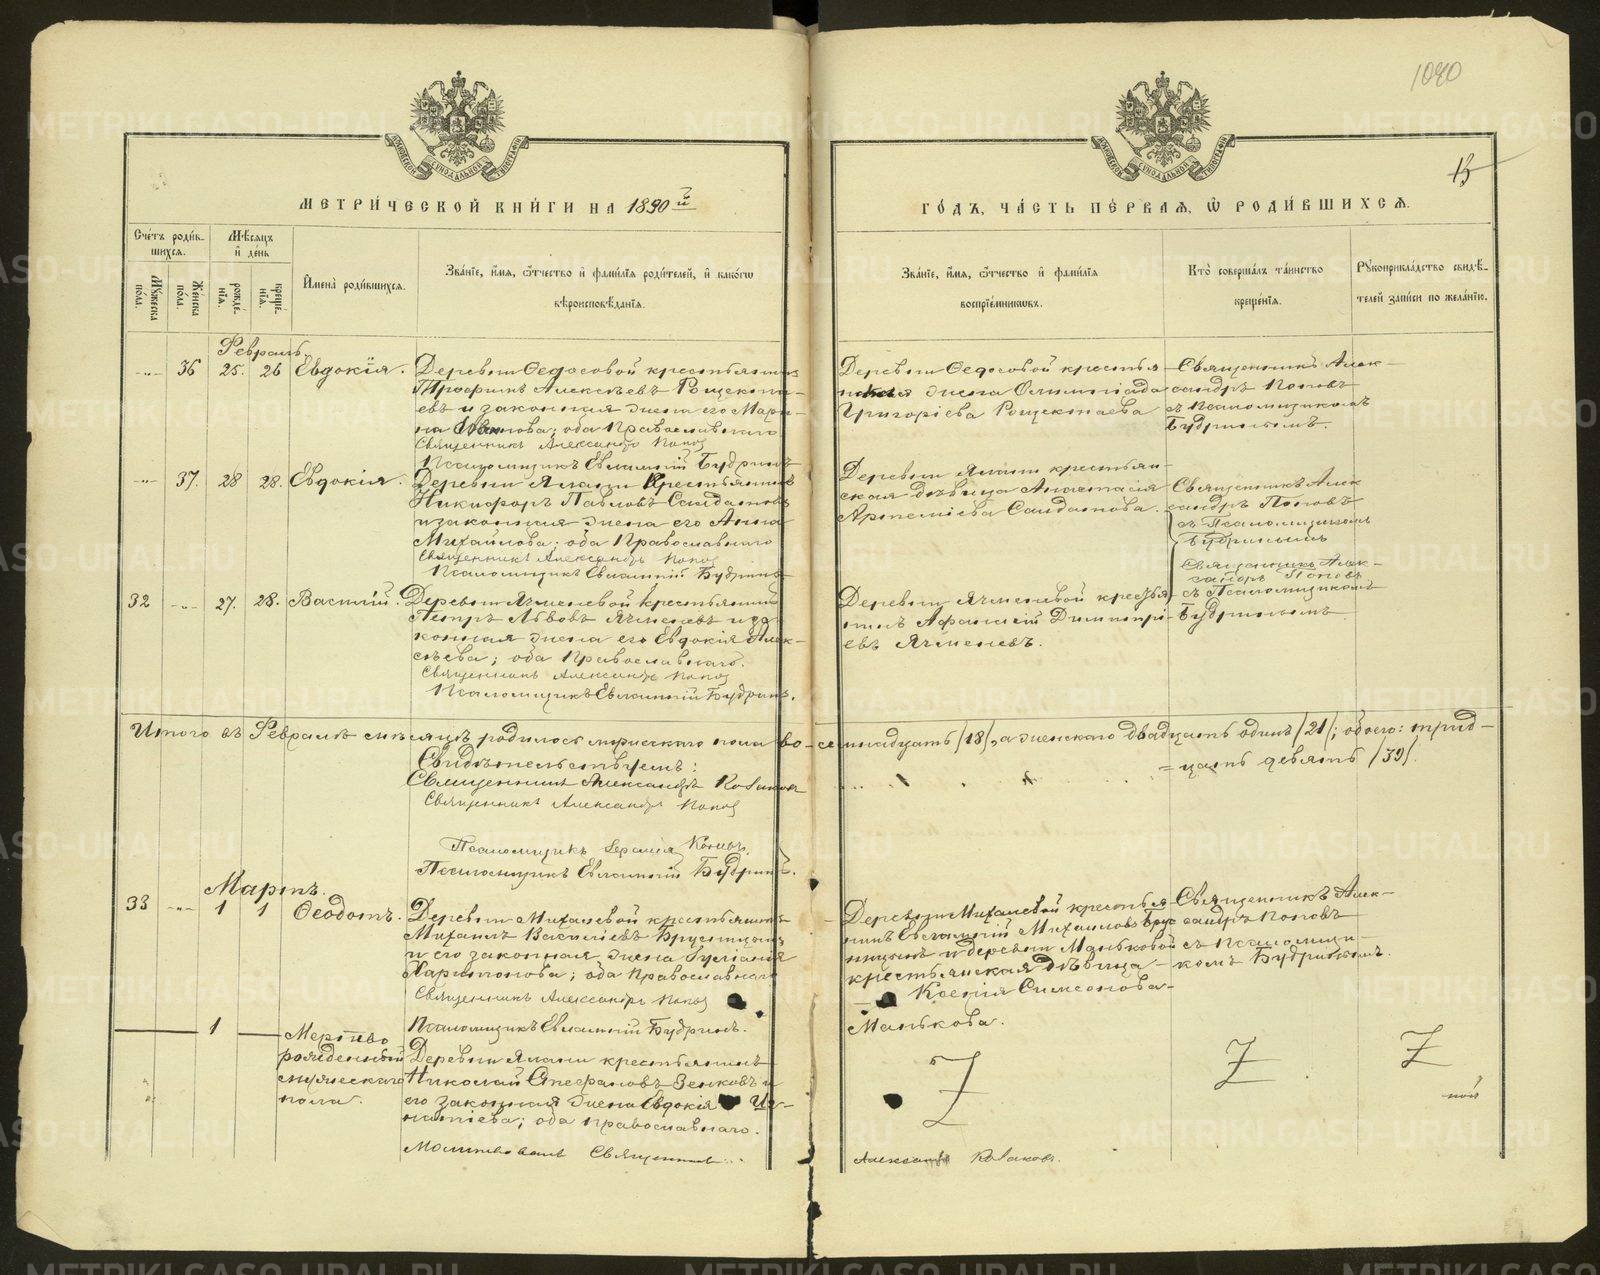 1090
15
МЕТРИ́ЧЕСКОЙ КНИ́ГИ НА 1890 й
ГО́ДЪ, ЧА́СТЬ ПЕ́РВАЯ, Ѡ РОДИ́ВШИХСЯ.
Сче́тъ роди́в-
шихся.
Му́жеска по́ла.
Же́нска по́ла.
Мѣ́сяцъ и де́нь
рожде́нїя.
креще́нїя.
И́мена роди́вшихся.
Зва́нїе, и́мя, ѻ́тчество и фами́лїя роди́телей, и како́гѡ
вѣроисповѣ́данїя.
Зва́нїе, и́мя, ѻ́тчество и фами́лїя
воспрїе́мниковъ.
Кто̀ соверша́лъ та́инство
креще́нїя.
Рукоприкла́дство свидѣ́-
телей за́писи по жела́нїю.
Февраль.
36 25. 26 Евдокія.
Деревни Ѳедосовой крестьянинъ
Трофимъ Алексѣевъ Рощекта-
евъ и законная жена его Мари-
на Иванова; оба Православнаго
Священникъ Александръ Попов
Псаломщикъ Евлампій Будринъ
Деревни Ѳедосовой крестья-
жена Олимпіада
Григоріева Рощектаева
Священникъ Алек-
сандръ Поповъ
съ псаломщикомъ
Будринымъ.
37. 28 28. Евдокія.
Деревни Ялани Крестьянинъ
Никифоръ Павловъ Саидатовъ
и законная жена его Анна
Михайлова; оба Православнаго
Священникъ Александръ Попов
Псаломщикъ Евлампій Будринъ
Деревни Ялани крестьян-
ская дѣвица Анастасія
Артеміева Саидатова.
Священникъ Алек
сандръ Поповъ
съ Псаломщикомъ
Будринымъ
32 27. 28. Василій.
Деревни Ячменевой Крестьянинъ
Петръ Львовъ Ячменевъ и за-
конная жена его Евдокія Алек-
сѣева; оба Православнаго.
Священникъ Александръ Попов
Псаломщикъ Евлампій Будринъ.
Деревни Ячменевой крестья-
нинъ Афанасій Димитрі-
евъ Ячменевъ.
Священникъ Алек-
сандръ Поповъ
съ Псаломщикомъ
Будринымъ
Итого въ Февралѣ мѣсяцѣ родилось мужескаго пола во-семнадцать /18/, а женскаго двадцать одинъ /21/; обоего: трид-
= цать девять /39/.
Свидѣтельствуемъ:
Священникъ Александръ Козаков
Священникъ Александръ Попов
Псаломщикъ
Псаломщикъ Евлампій Будринъ.
Мартъ.
33 1 1 Ѳеодотъ.
Деревни Михалевой крестьянинъ
Михаилъ Василіевъ Брусницынъ
и его законная жена Іуліанія
Харитонова; оба православнаго
Священникъ Александръ Попов
Псаломщикъ Евлампій Будринъ.
Деревни Михалевой крестья-
нинъ Евгампій Михаиловъ Брус
ницынъ и деревни Маньковой
крестьянская дѣвица -
Ксенія Симеонова-
Манькова.
Священникъ Алек-
сандръ Поповъ
съ псаломщи-
комъ Будринымъ.
1
Мертво
рожденный
мужескаго
пола.
Деревни Ялани крестьянинъ
Николай Стефановъ Зенковъ и
его законная жена Евдокія Иг-
натіева; оба православнаго.
Молитвовалъ Священникъ
Александръ Козаковъ.